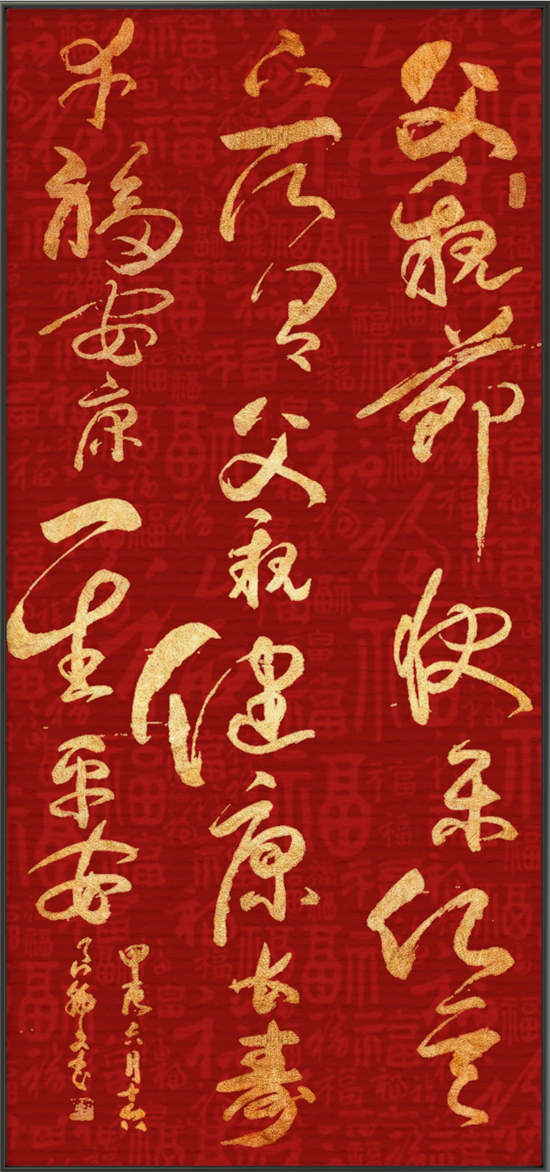 父親節快乐祝天
下所有父親健康长寿
幸福安康一生平安
甲辰六月十六